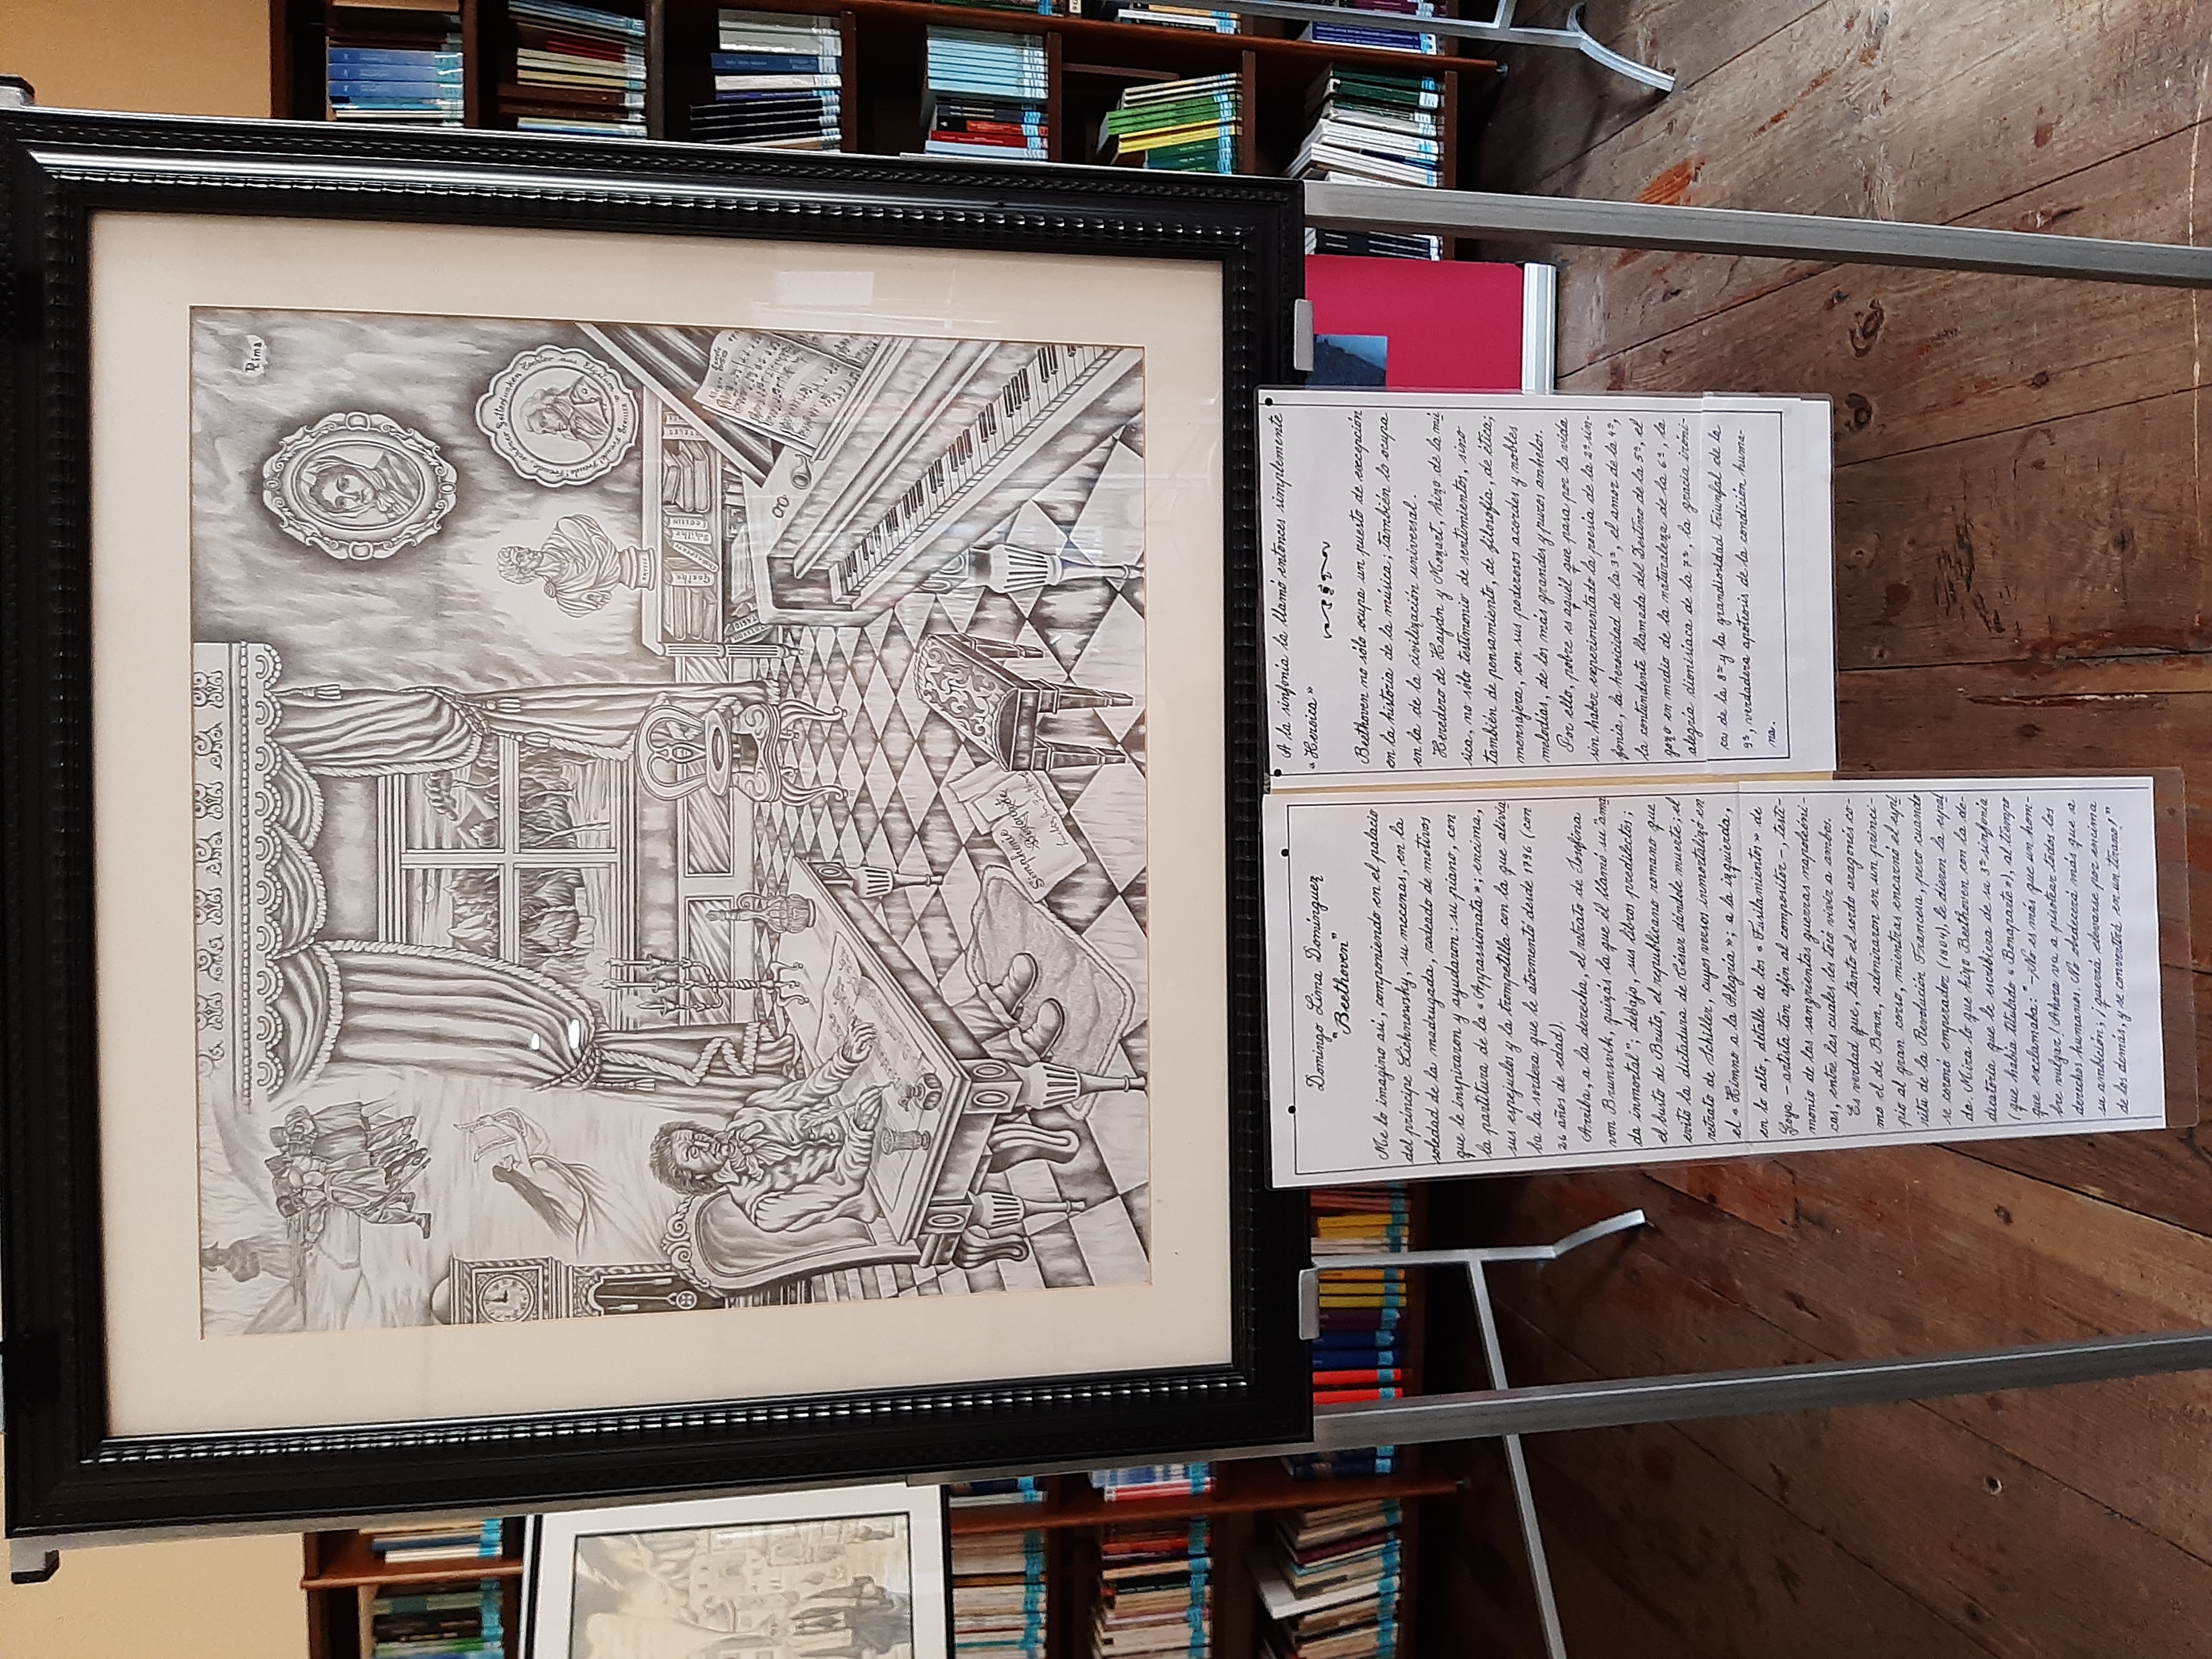 Lima
Freude! Freude! Freude, schöner Götterfunken Tochter aus Elysium
SCHILLER
Goethe
Schiller
Simphonie
Bonaparte
Domingo Lima Domínguez
"Beethoven"
Me lo imagino así, componiendo en el palacio
del príncipe Lichnowsky, su mecenas, en la
soledad de la madrugada, rodeado de motivos
que le inspiraron y ayudaron: su piano, con
la partitura de la «Appassionata»; encima,
sus espejuelos y la trompetilla con la que alivia
ba la sordera que le atormentó desde 1796 (con
26 años de edad).
Arriba, a la derecha, el retrato de Josefina
von Brunsvick, quizás la que él llamó su "ama
da inmortal"; debajo, sus libros predilectos;
el busto de Bruto, el republicano romano que
evitó la dictadura de César dándole muerte; el
retrato de Schiller, cuyos versos inmortalizó en
el «Himno a la Alegría»; a la izquierda,
en lo alto, detalle de los «Fusilamientos» de
Goya -artista tan afín al compositor-, testi-
monio de las sangrientas guerras napoleóni-
cas, entre las cuales les tocó vivir a ambos.
Es verdad que, tanto el sordo aragonés co-
mo el de Bonn, admiraron en un princi-
pio al gran corso, mientras encarnó el espí
ritu de la Revolución Francesa, pero cuando
se coronó emperador (1804), le dieron la espal
da. Mira lo que hizo Beethoven con la de-
dicatoria que le escribiera de su 3ª sinfonía
(que había titulado «Bonaparte»), al tiempo
que exclamaba: "-¡No es más que un hom-
bre vulgar! ¡Ahora va a pisotear todos los
derechos humanos. No obedecerá más que a
su ambición; ¡querrá elevarse por encima
de los demás, y se convertirá en un tirano!"
A la sinfonía la llamó entonces simplemente
«Heroica»
Beethoven no sólo ocupa un puesto de excepción
en la historia de la música, también lo ocupa
en la de la civilización universal.
Heredero de Haydn y Mozart, hizo de la mú
sica, no sólo testimonio de sentimientos, sino
también de pensamiento, de filosofía, de ética;
mensajera, con sus poderosos acordes y nobles
melodías, de los más grandes y puros anhelos.
Por ello, pobre es aquél que pasa por la vida
sin haber experimentado la poesía de la 2ª sin-
fonía, la heroicidad de la 3ª, el amor de la 4ª,
la contundente llamada del Destino de la 5ª, el
gozo en medio de la naturaleza de la 6ª, la
alegría dionisíaca de la 7ª, la gracia iróni-
ca de la 8ª y la grandiosidad triunfal de la
9ª, verdadera apoteosis de la condición huma-
na.